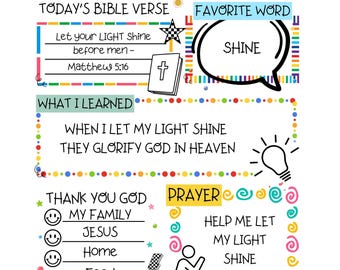 TODAY'S BIBLE VERSE
Let your LIGHT Shine
before men -
Matthew 5:16
FAVORITE WORD
SHINE
WHAT I LEARNED
WHEN I LET MY LIGHT SHINE
THEY GLORIFY GOD IN HEAVEN
THANK YOU GOD
MY FAMILY
JESUS
Home
PRAYER
HELP ME LET
MY LIGHT
SHINE